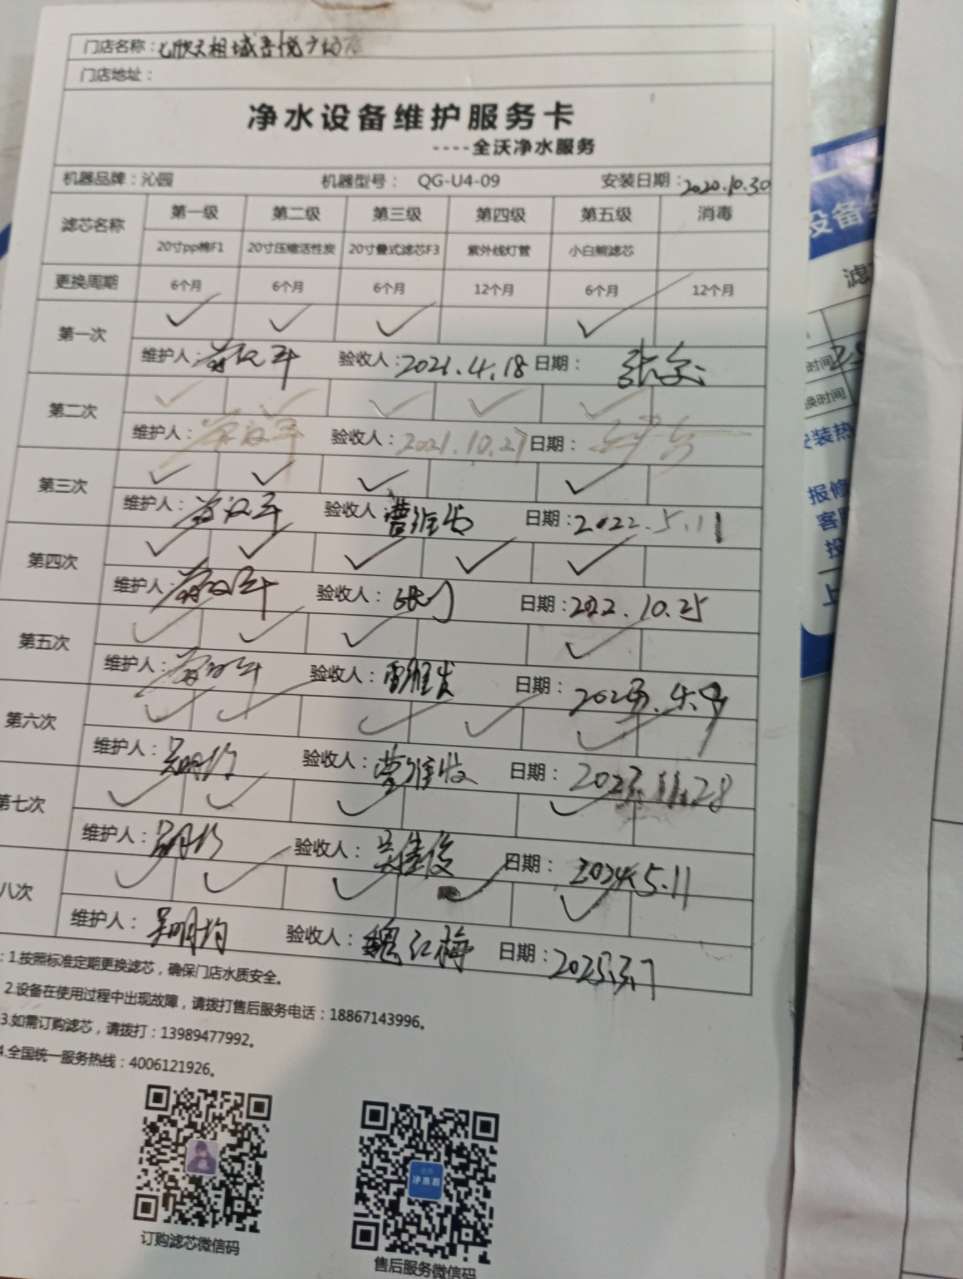 门店名称：
门店地址：
净水设备维护服务卡
----全沃净水服务
机器品牌：沁园 机器型号： QG-U4-09 安装日期：2020.10.30
滤芯名称 第一级 第二级 第三级 第四级 第五级 消毒
20寸pp棉F1 20寸压缩活性炭 20寸叠式滤芯F3 紫外线灯管 小白熊滤芯
更换周期 6个月 6个月 6个月 12个月 6个月 12个月
第一次 ✓ ✓ ✓ ✓
维护人： 验收人：2021.4.18 日期：
第二次 ✓ ✓ ✓ ✓ ✓
维护人： 验收人：2021.10.27 日期：
第三次 ✓ ✓ ✓ ✓
维护人： 验收人 日期：2022.5.11
第四次 ✓ ✓ ✓ ✓ ✓
维护人： 验收人： 日期：2022.10.25
第五次 ✓ ✓ ✓ ✓
维护人： 验收人： 日期：2023.4.9
第六次 ✓ ✓ ✓ ✓ ✓
维护人：吴明均 验收人： 日期：2023.11.28
第七次 ✓ ✓ ✓ ✓
维护人：吴明均 验收人：吴佳俊 日期：2024.5.11
八次 ✓ ✓ ✓ ✓ ✓
维护人：吴明均 验收人：魏红梅 日期：2025.3.7
：1.按照标准定期更换滤芯，确保门店水质安全。
2.设备在使用过程中出现故障，请拨打售后服务电话：18867143996。
3.如需订购滤芯，请拨打：13989477992。
4.全国统一服务热线：4006121926。
订购滤芯微信码
售后服务微信码
设备
滤
时间
换时间
安装热
报修
客服
投
上